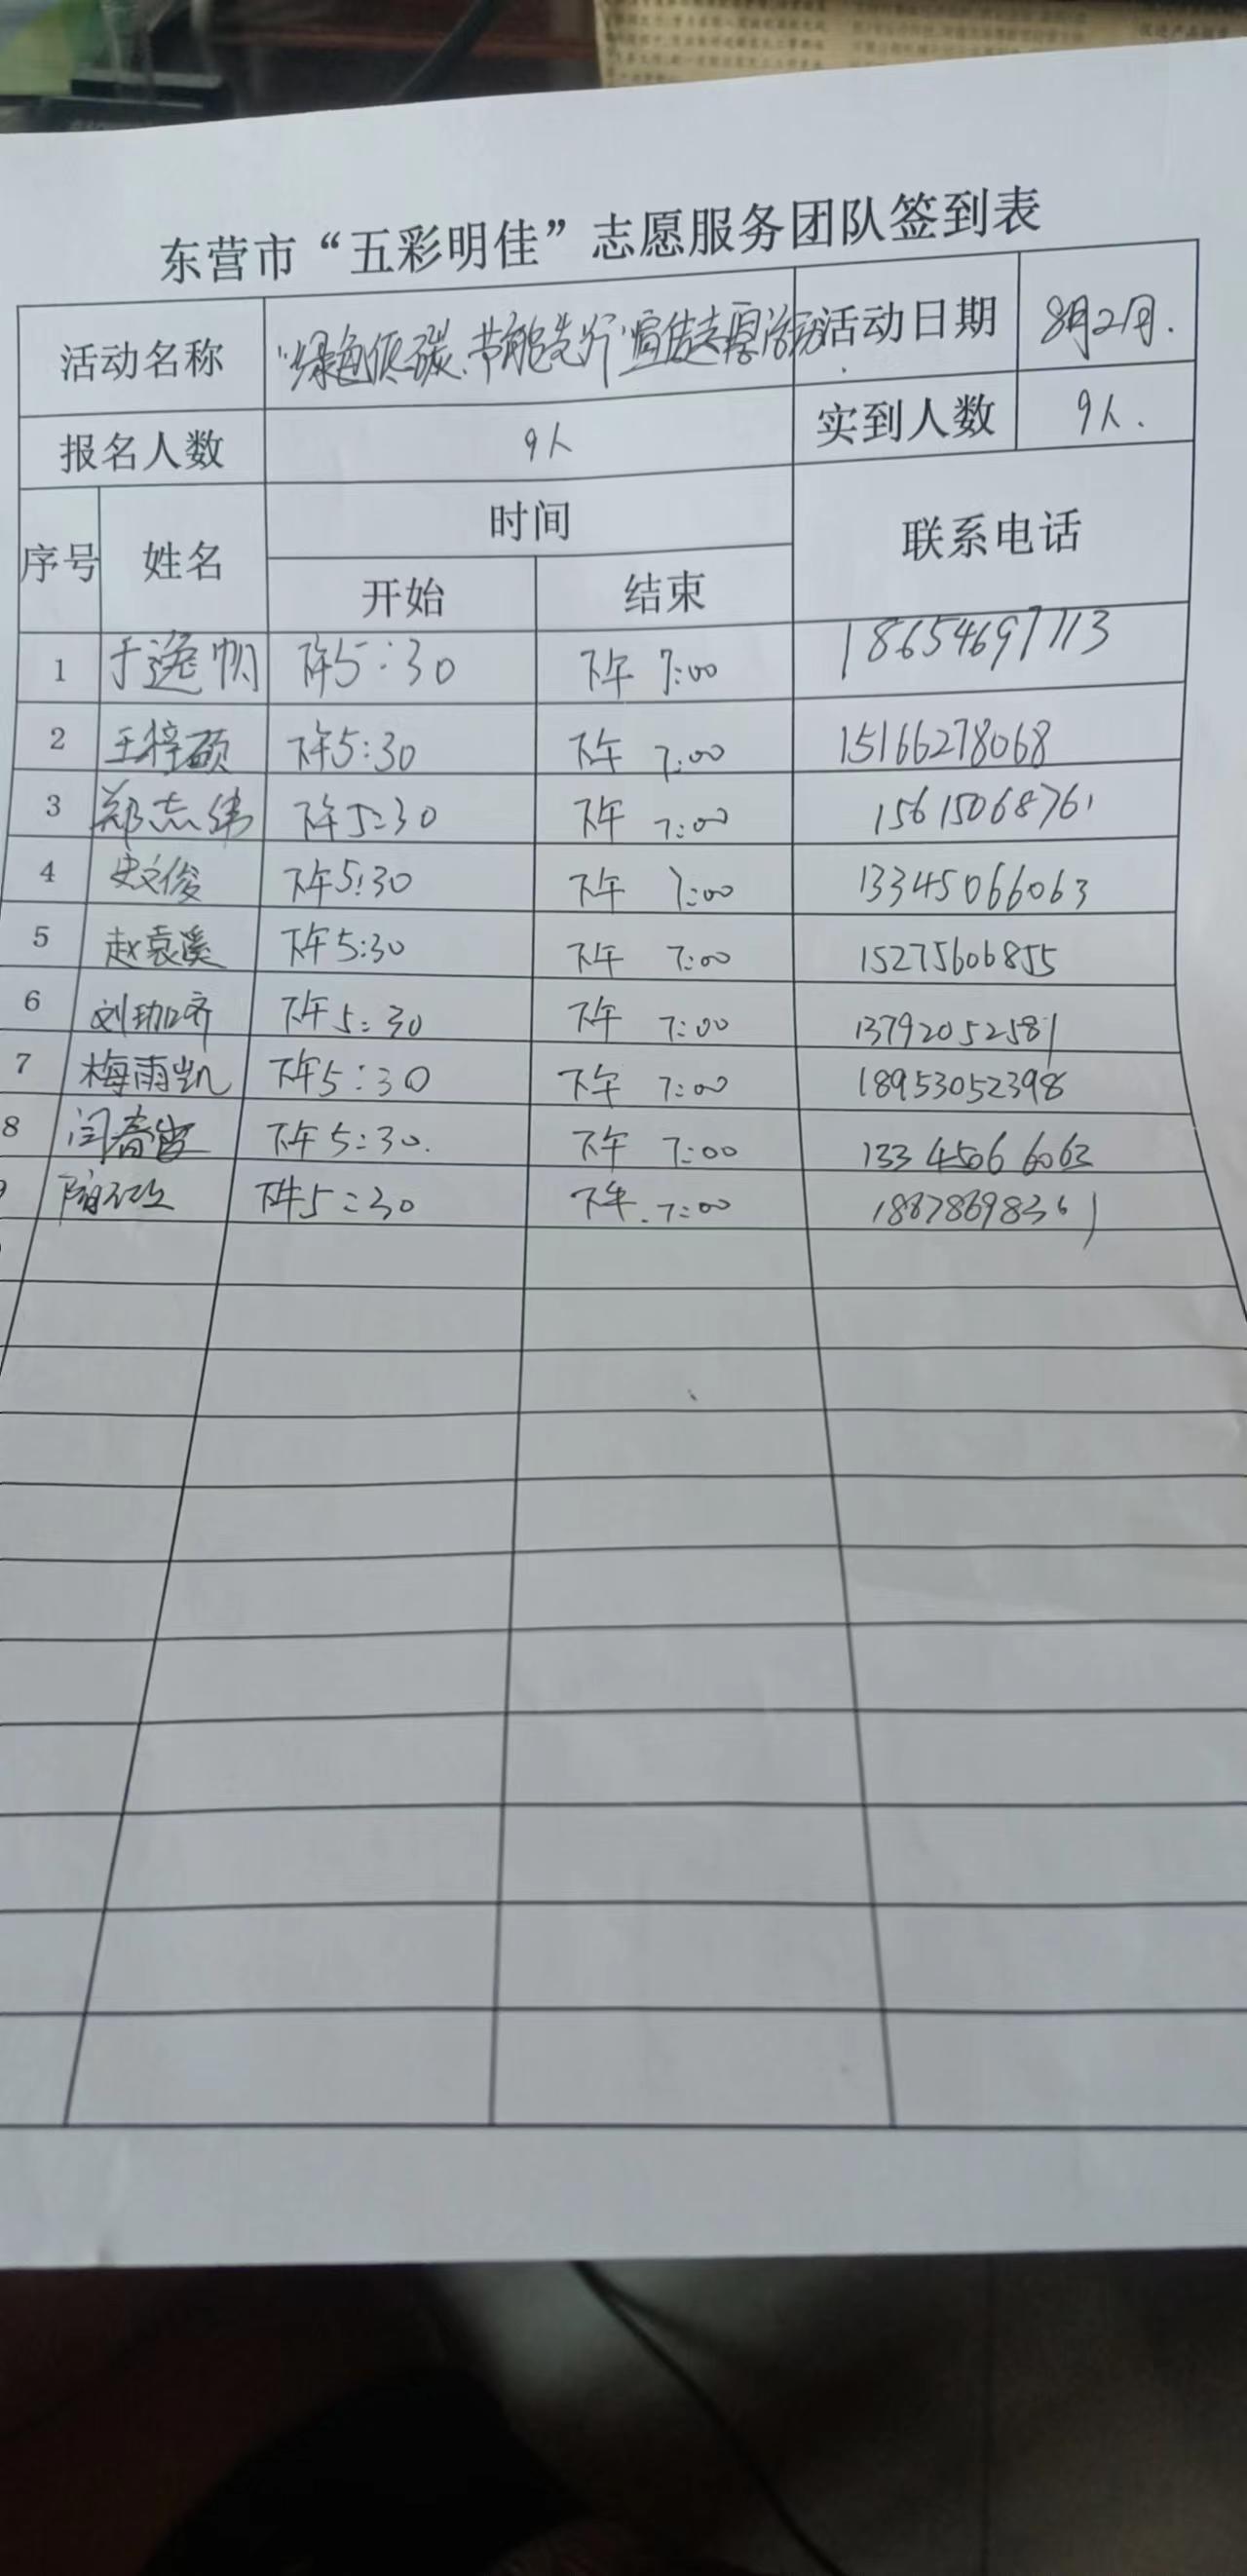 东营市“五彩明佳”志愿服务团队签到表
活动名称 “绿色低碳、节能先行”宣传志愿活动 活动日期 8月2日.
报名人数 9人 实到人数 9人.
序号 姓名 时间 联系电话
开始 结束
1 于逸帆 下午5:30 下午 7:00 18654697713
2 王梓硕 下午5:30 下午 7:00 15166278068
3 郑志伟 下午5:30 下午 7:00 15615068761
4 史文俊 下午5:30 下午 7:00 13345066063
5 赵袁溪 下午5:30 下午 7:00 15275606855
6 刘 下午5:30 下午 7:00 13792052581
7 梅雨凯 下午5:30 下午 7:00 18953052398
8 闫 下午5:30. 下午 7:00 13345066063
下午5:30 下午.7:00 18878698361